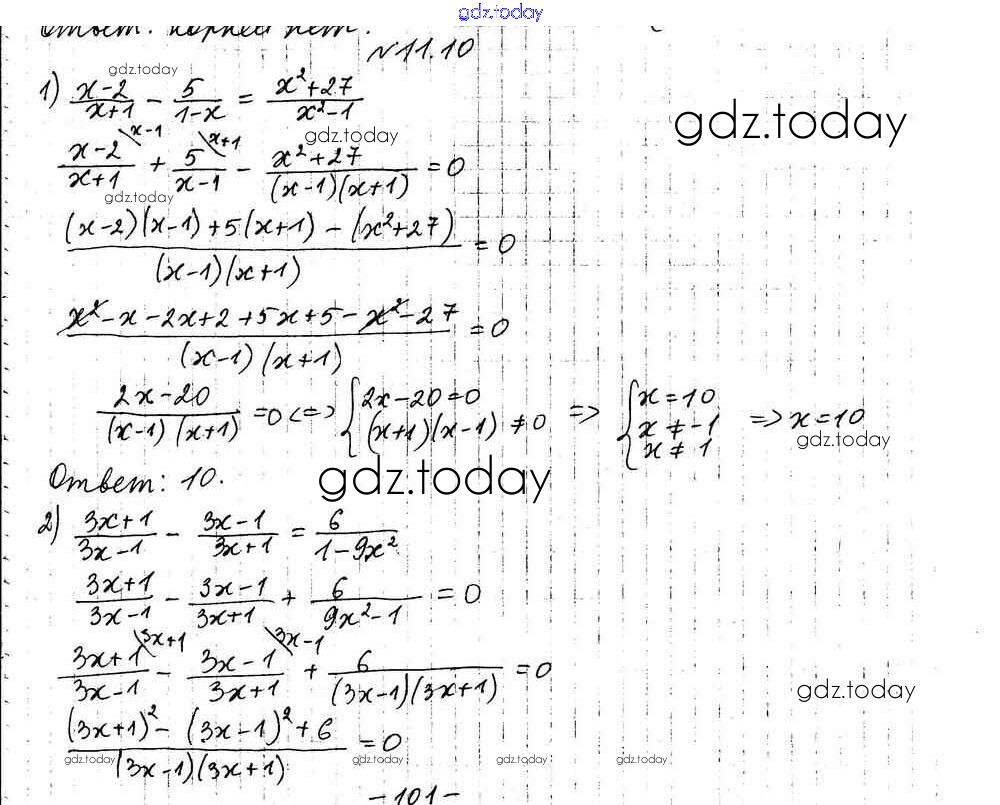 gdz.today
Ответ: корней нет.
№11.10
gdz.today
1) (x-2)/(x+1) - 5/(1-x) = (x²+27)/(x²-1)
gdz.today
gdz.today
(x-2)/(x+1) \x-1 + 5/(x-1) \x+1 - (x²+27)/((x-1)(x+1)) = 0
gdz.today
((x-2)(x-1)+5(x+1)-(x²+27))/((x-1)(x+1)) = 0
(x²-x-2x+2+5x+5-x²-27)/((x-1)(x+1)) = 0
(2x-20)/((x-1)(x+1)) = 0 <=> { 2x-20=0 (x+1)(x-1) ≠ 0 => { x=10 x≠-1 x≠1 => x=10
gdz.today
Ответ: 10.
gdz.today
2) (3x+1)/(3x-1) - (3x-1)/(3x+1) = 6/(1-9x²)
(3x+1)/(3x-1) - (3x-1)/(3x+1) + 6/(9x²-1) = 0
(3x+1)/(3x-1) \3x+1 - (3x-1)/(3x+1) \3x-1 + 6/((3x-1)(3x+1)) = 0
gdz.today
((3x+1)²-(3x-1)²+6)/((3x-1)(3x+1)) = 0
gdz.today gdz.today gdz.today gdz.today
-101-